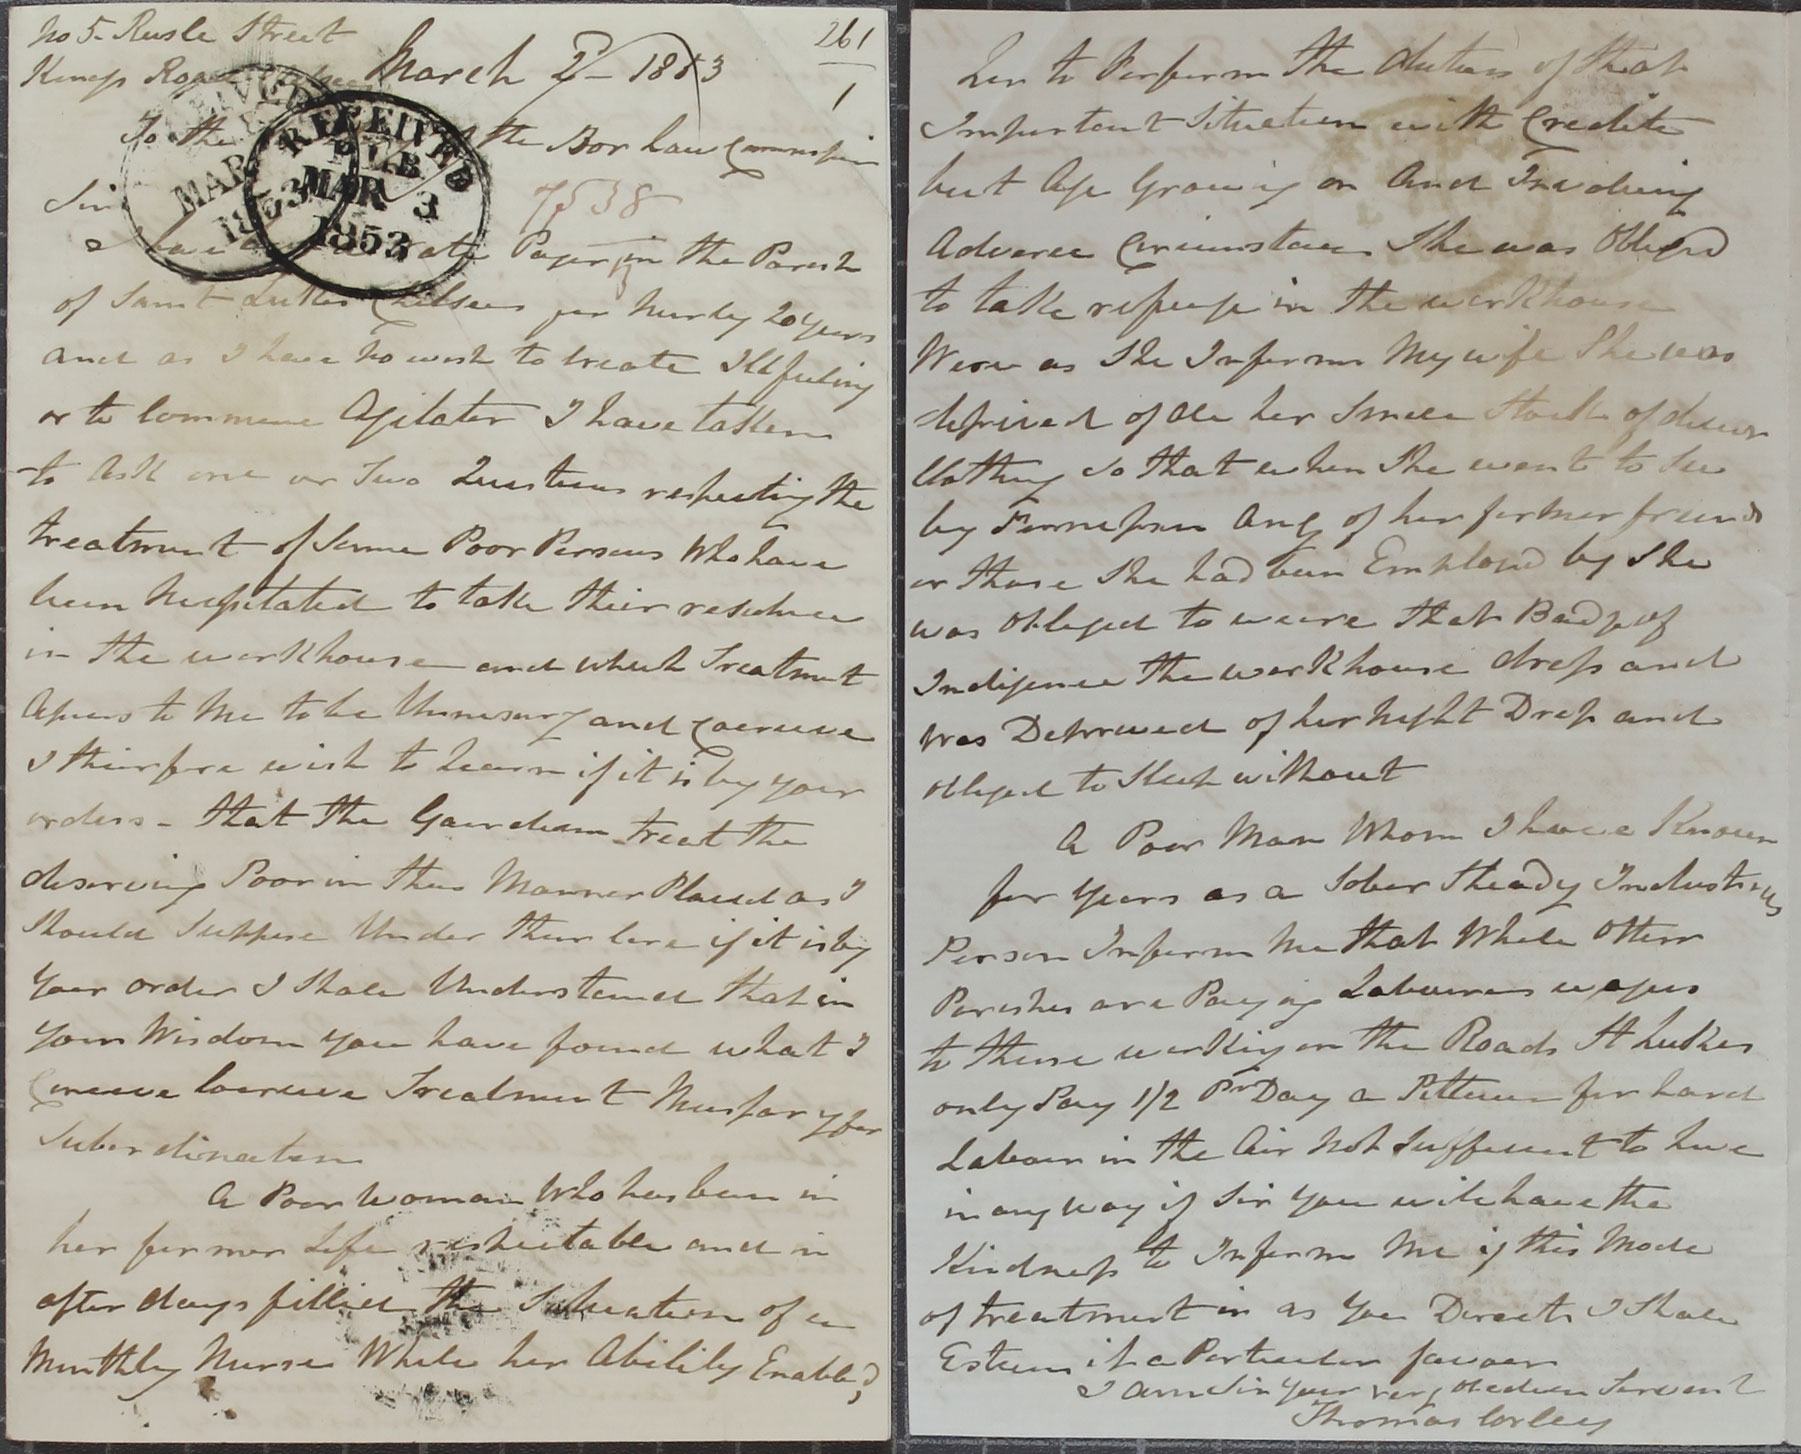 No 5 Rusle Street
Kings Road March 2d - 1853
261
1
To the the Poor Law Commission
Sir
7538
RECEIVED
P.L.B
MAR 3
1853
MAR
1853
I have Rate Payer in the Parish
of Saint Lukes Chelsea for Nerly 20 years
and as I have no wish to create Ill feeling
or to Commence Agitator I have taken
to Ask one or Two Questions respecting the
treatment of Some Poor Persons Who have
been Nessitated to take their residence
in the workhouse and which Treatment
Apears to Me to be Unnesary and Coercive
I theirfore wish to learn if it is by your
orders - that the Gaurdians treat the
deserving Poor in this Manner Placed as I
Should Suppose Under their Care if it is by
Your order I Shall Understand that in
Your Wisdom you have found what I
Conceive Coercive Treatment Nessary for
Subordination
A Poor Woman Who has been in
her former Life respectable and in
after days fillied the Situation of a
Monthly Nurse While her Ability Enabled
her to Perform the duties of that
Important Situation with Credite
but Age Growing on And Involving
Adverce Circumstances She was Obliged
to take refuge in the workhouse
Were as She Informs My wife She was
deprived of all her Small Stock of
Clothing So that when She went to See
by Permission Any of her former friends
or those She had been Employd by She
was obliged to weare that Badge of
Indigence the workhouse dress and
was Deprived of her Night Dress and
obliged to Sleep without
A Poor Man Whom I have Known
for years as a Sober Steady Industrius
Person Inform Me that While Other
Parishes are Paying Labourers wages
to those working on the Roads St Lukes
only Pay 1/2 Pr Day a Pittance for hard
Labour in the Air Not Sufficient to live
in any way if Sir you will have the
Kindness to Inform Me if this Mode
of treatment is as You Directs I Shall
Esteem it a Particular favour
I am Sir Your very obedien Servant
Thomas Corley